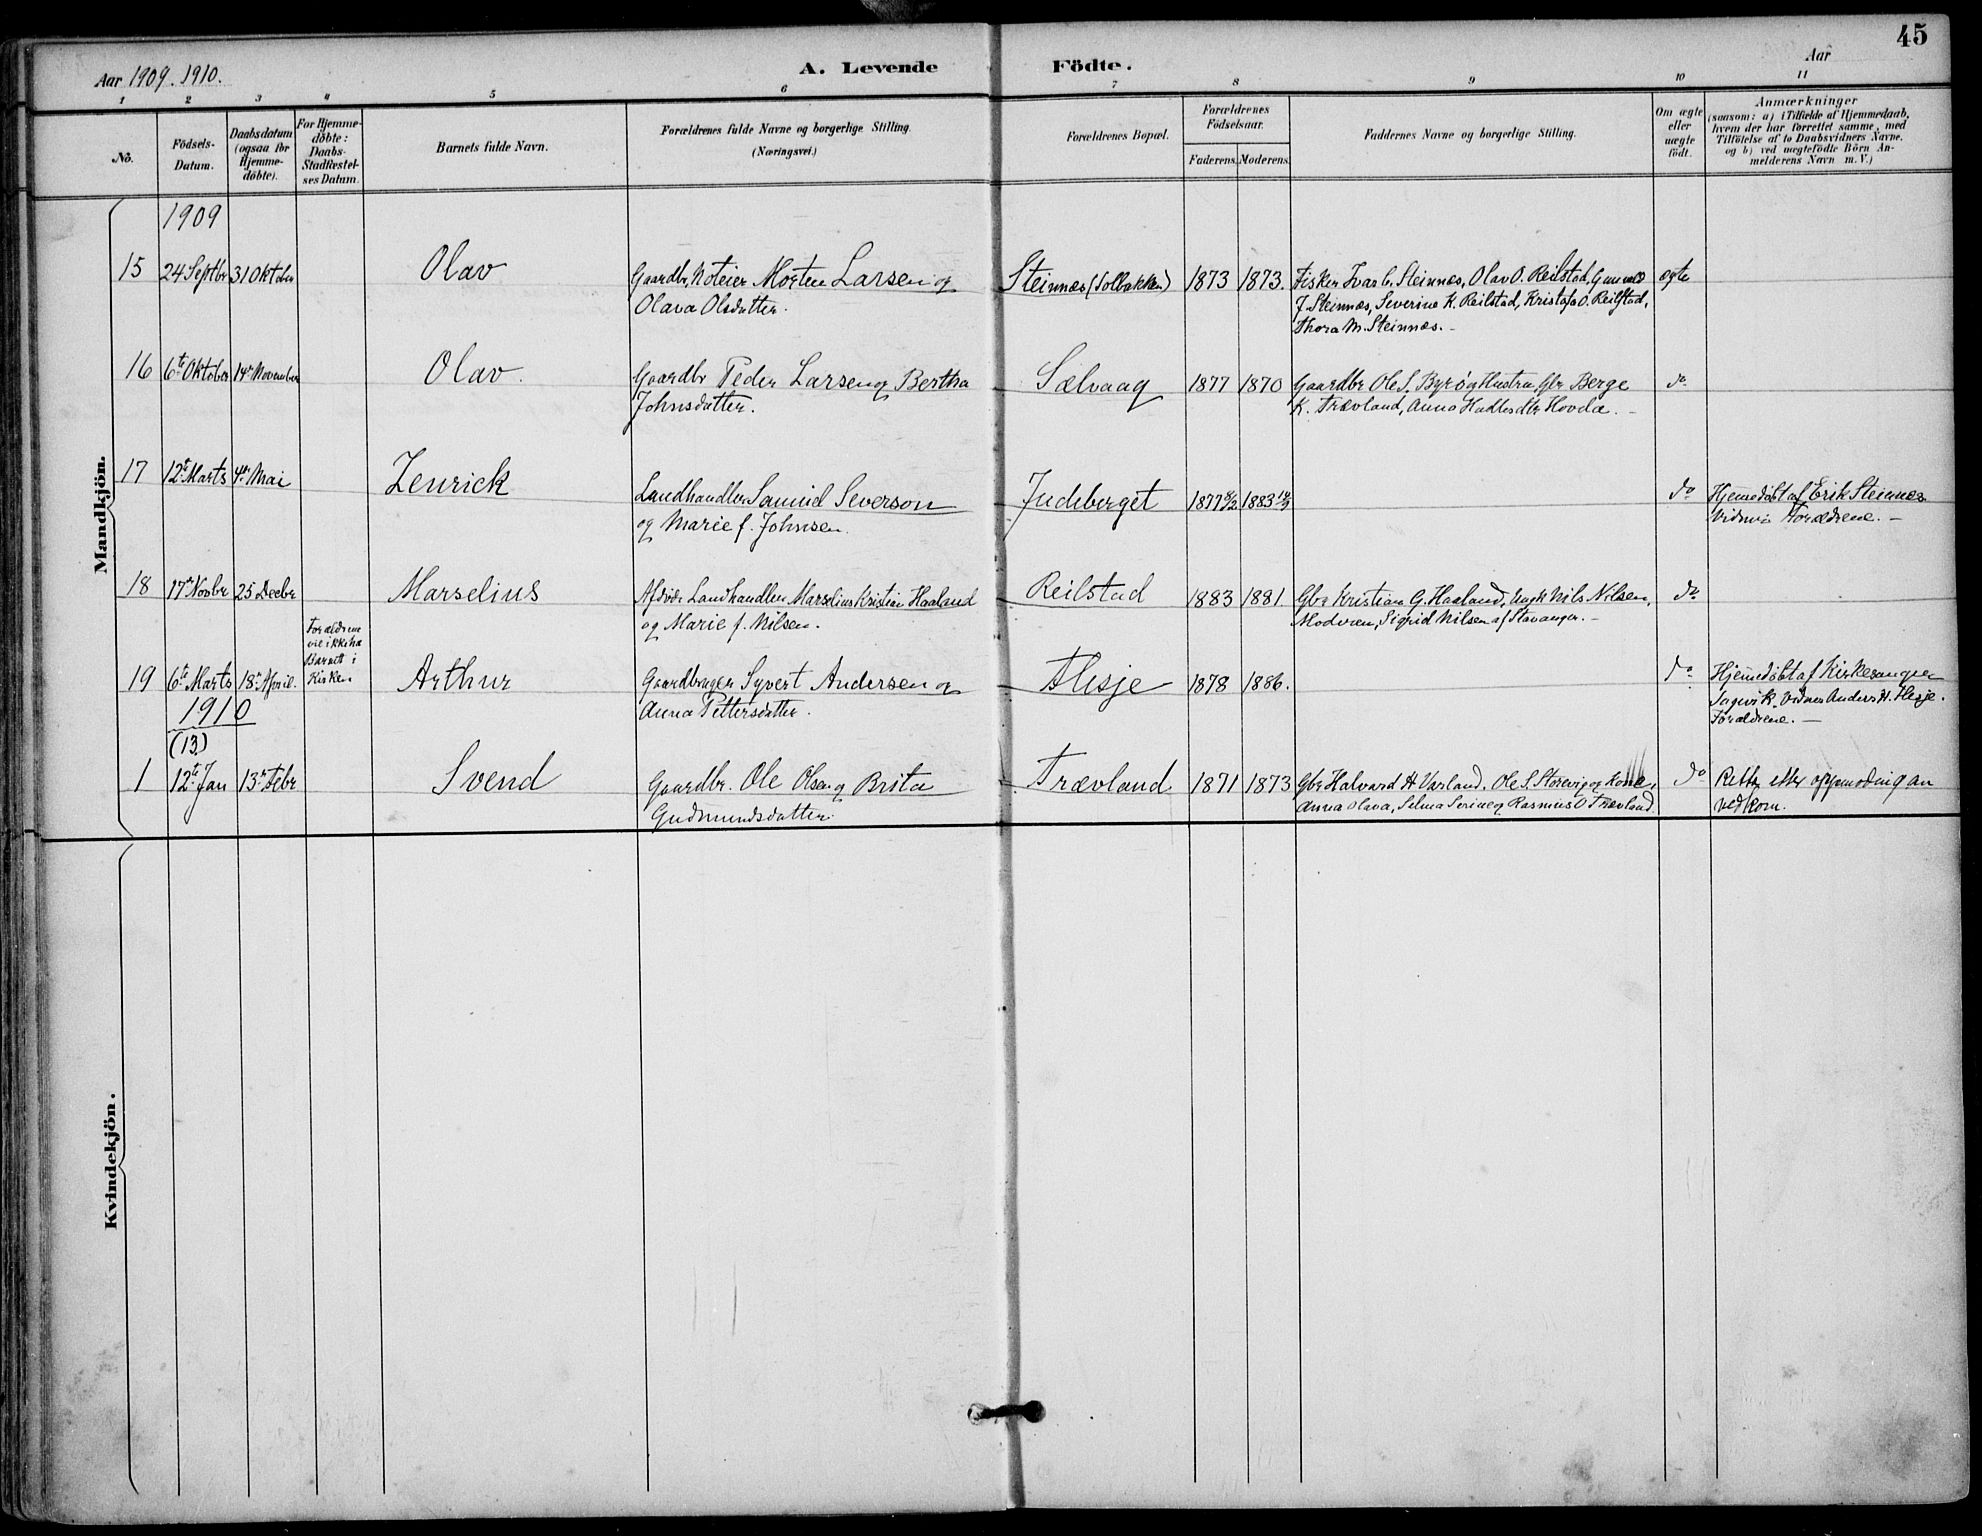 45
Aar 1909. 1910.
A. Levende Födte.
Aar
1 2 3 4 5 6 7 8 9 10 11
No.
Födsels-
Datum.
Daabsdatum
(ogsaa for
Hjemme-
döbte).
For Hjemme-
döbte:
Daabs-
Stadfæstel-
ses Datum.
Barnets fulde Navn.
Forældrenes fulde Navne og borgerlige Stilling.
(Næringsvei.)
Forældrenes Bopæl.
Forældrenes
Födselsaar.
Faderens. Moderens.
Faddernes Navne og borgerlige Stilling.
Om ægte
eller
uægte
födt.
Anmærkninger
(saasom: a) i Tilfælde af Hjemmedaab,
hvem der har forrettet samme, med
Tilföielse af to Daabsvidners Navne.
og b) ved uægtefödte Börn An-
melderens Navn m. V.)
Mandkjön.
1909
15 24 Septbr 31 Oktober Olav Gaardbr, Noteier Morten Larsen og Steinnæs (Solbakken) 1873 1873. Fisker Ivar C. Steinnæs, Olav O. Reilstad, Gunvald ægte
Olava Olsdatter. J. Steinnæs, Severine K. Reilstad, Kristofa O. Reilstad,
Thora M. Steinnæs. -
16 6te Oktober 14de November Olav. Gaardbr Peder Larsen og Bertha Sælvaag 1877 1870 Gaardbr Ole S. Byrø og Hustru, Gbr Berge do
Johnsdatter. K. Trævland, Anna Hadlesdtr Hovda. -
17 12te Marts 4de Mai Zenrick Landhandler Samuel Severson Judeberget 1877 1883 do Hjemedöbt af Erik Steinnes
og Marie f. Johnsen. Forældrene. -
18 17de Novbr 25 Decbr Marselius Landhandler Marselius Kristian Haaland Reilstad 1883 1881 Gbr Kristian G. Haaland, Ungk Nils Nilsen, do
og Marie f. Nilsen. Moderen, Sigrid Nilsen af Stavanger. -
Forældrene
vil ikke ha
Barnet i
Kirken
19 6te Marts 18de April. Arthur Gaardbruger Syvert Andersen og Hesje 1878 1886. do Hjemedöbt af Kirkesanger
Anna Pettersdatter. Sagvik. Vidner Anders H. Hesje.
Forældrene. -
1910
(13)
1 12te Jan 13de Febr Svend Gaardbr. Ole Olsen og Brita Trævland 1871 1873 Gbr Halvard H Varland. Ole S. Storevig og Kone, do Rettet efter opmodning an
Gudmundsdatter. Anna Olava, Selma Serine og Rasmus O Trævland. vedkom.
Kvindekjön.